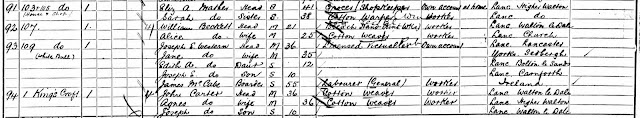 91 103+105 do 1 Eliz A Mather Head 8 Grocer Shopkeeper Own account at home Lanc Higher Walton
(House & Shop) Sarah do Sister 38 Cotton Warper Worker Lanc do
92 107 1 William Beckett Head M 21 Worker Lanc Walton le Dale
Alice do Wife M 23 Cotton Weaver Worker Lanc Church
93 109 do 1 Joseph S Western Head M 36 Licensed Victualler Own account Lanc Lancaster
(White Bull) Jane do Wife M 35 Yorks Sedbergh
Edith A do Daur S 12 Lanc Bolton le Sands
Joseph S do Son S 10 Lanc Carnforth
James McCabe Boarder S 55 Labourer (General) Worker Ireland
94 1 King's Croft 1 John Carter Head M 36 Cotton Weaver Worker Lanc Walton le Dale
Agnes do Wife M 36 Cotton Weaver Worker Lanc Higher Walton
Joseph do Son S 10 Lanc Walton le Dale